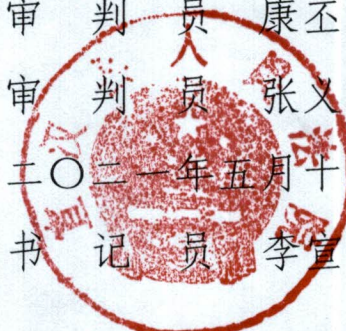 审 判 员 康丕
审 判 员 张义
二〇二一年五月十
书 记 员 李宣